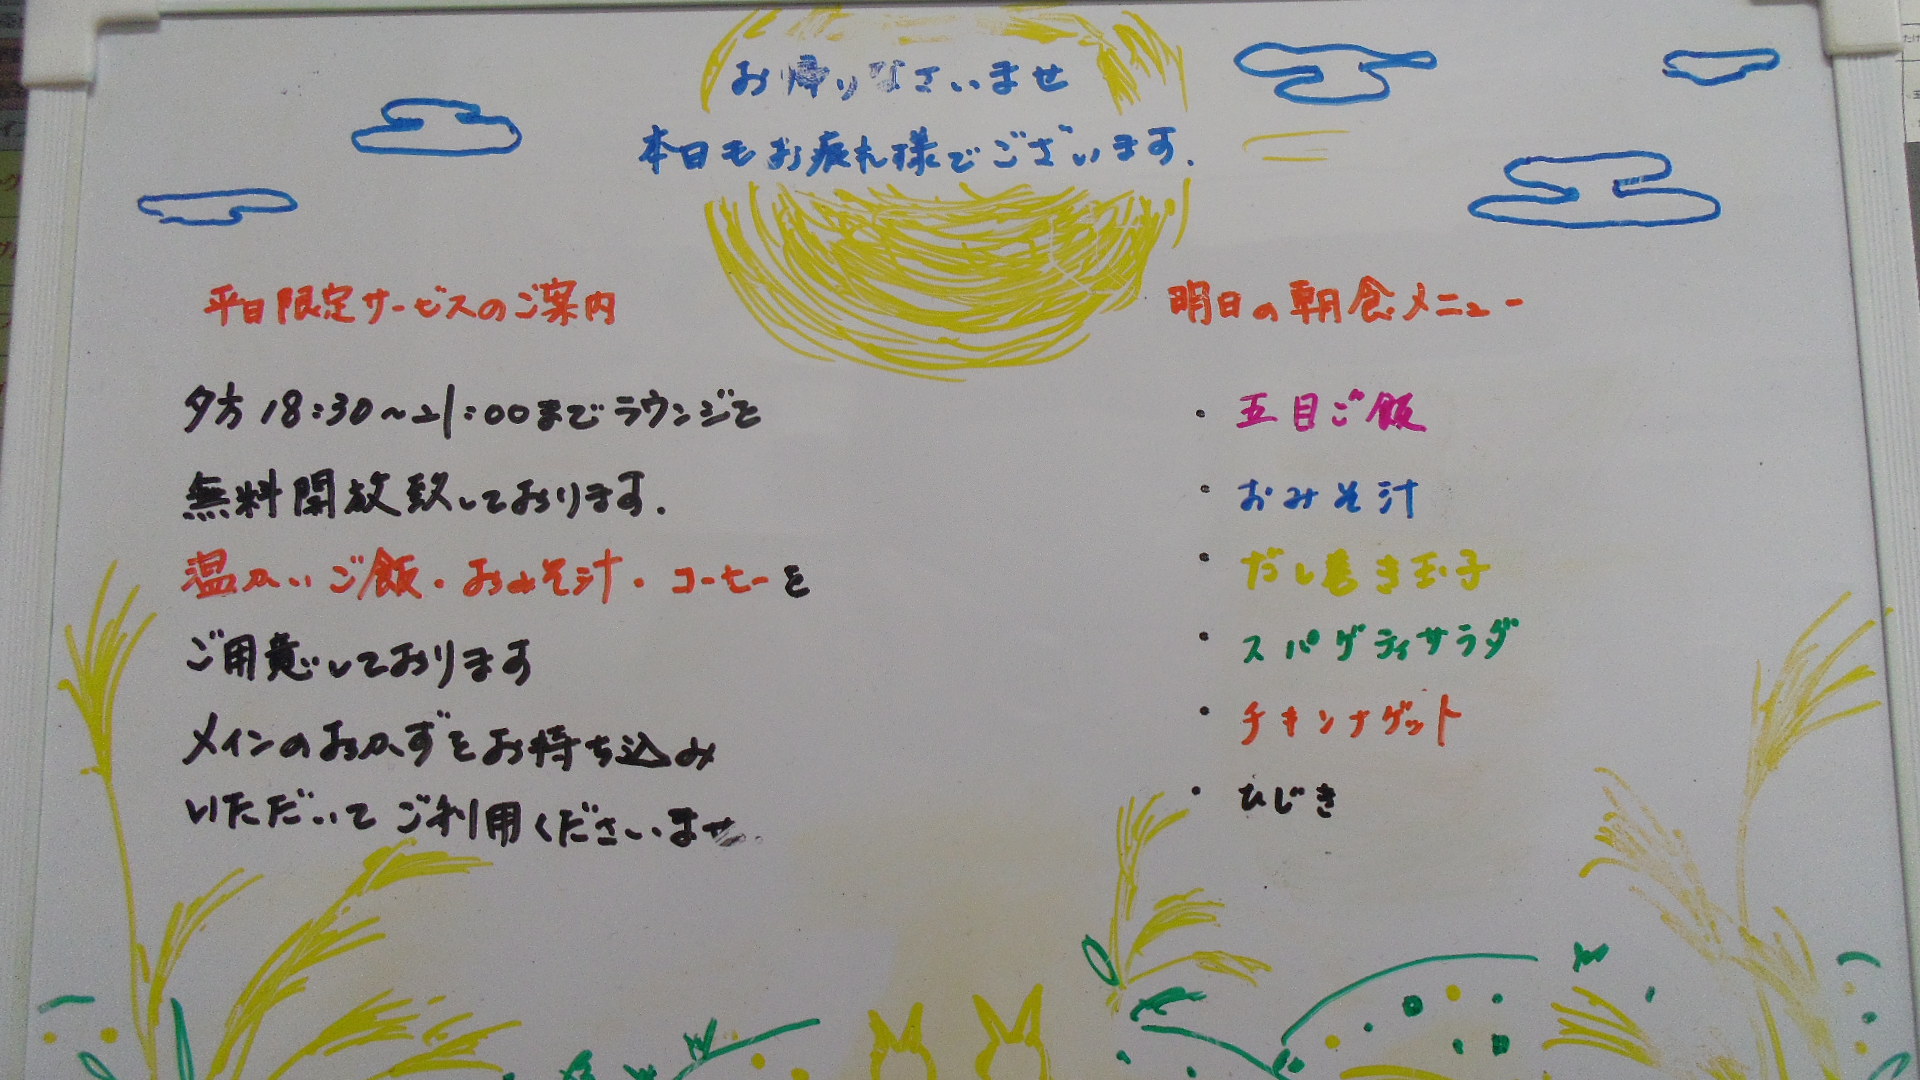 お帰りなさいませ
本日もお疲れ様でございます.
平日限定サービスのご案内
夕方 18:30～21:00までラウンジを
無料開放致しております.
温かいご飯・おみそ汁・コーヒーを
ご用意しております
メインのおかずをお持ち込み
いただいてご利用くださいませ.
明日の朝食メニュー
・五目ご飯
・おみそ汁
・だし巻き玉子
・スパゲティサラダ
・チキンナゲット
・ひじき